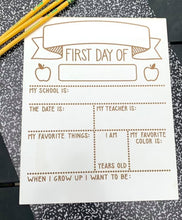 FIRST DAY OF
MY SCHOOL IS:
THE DATE IS:
MY TEACHER IS:
MY FAVORITE THINGS:
I AM
MY FAVORITE
COLOR IS:
YEARS OLD
WHEN I GROW UP I WANT TO BE: